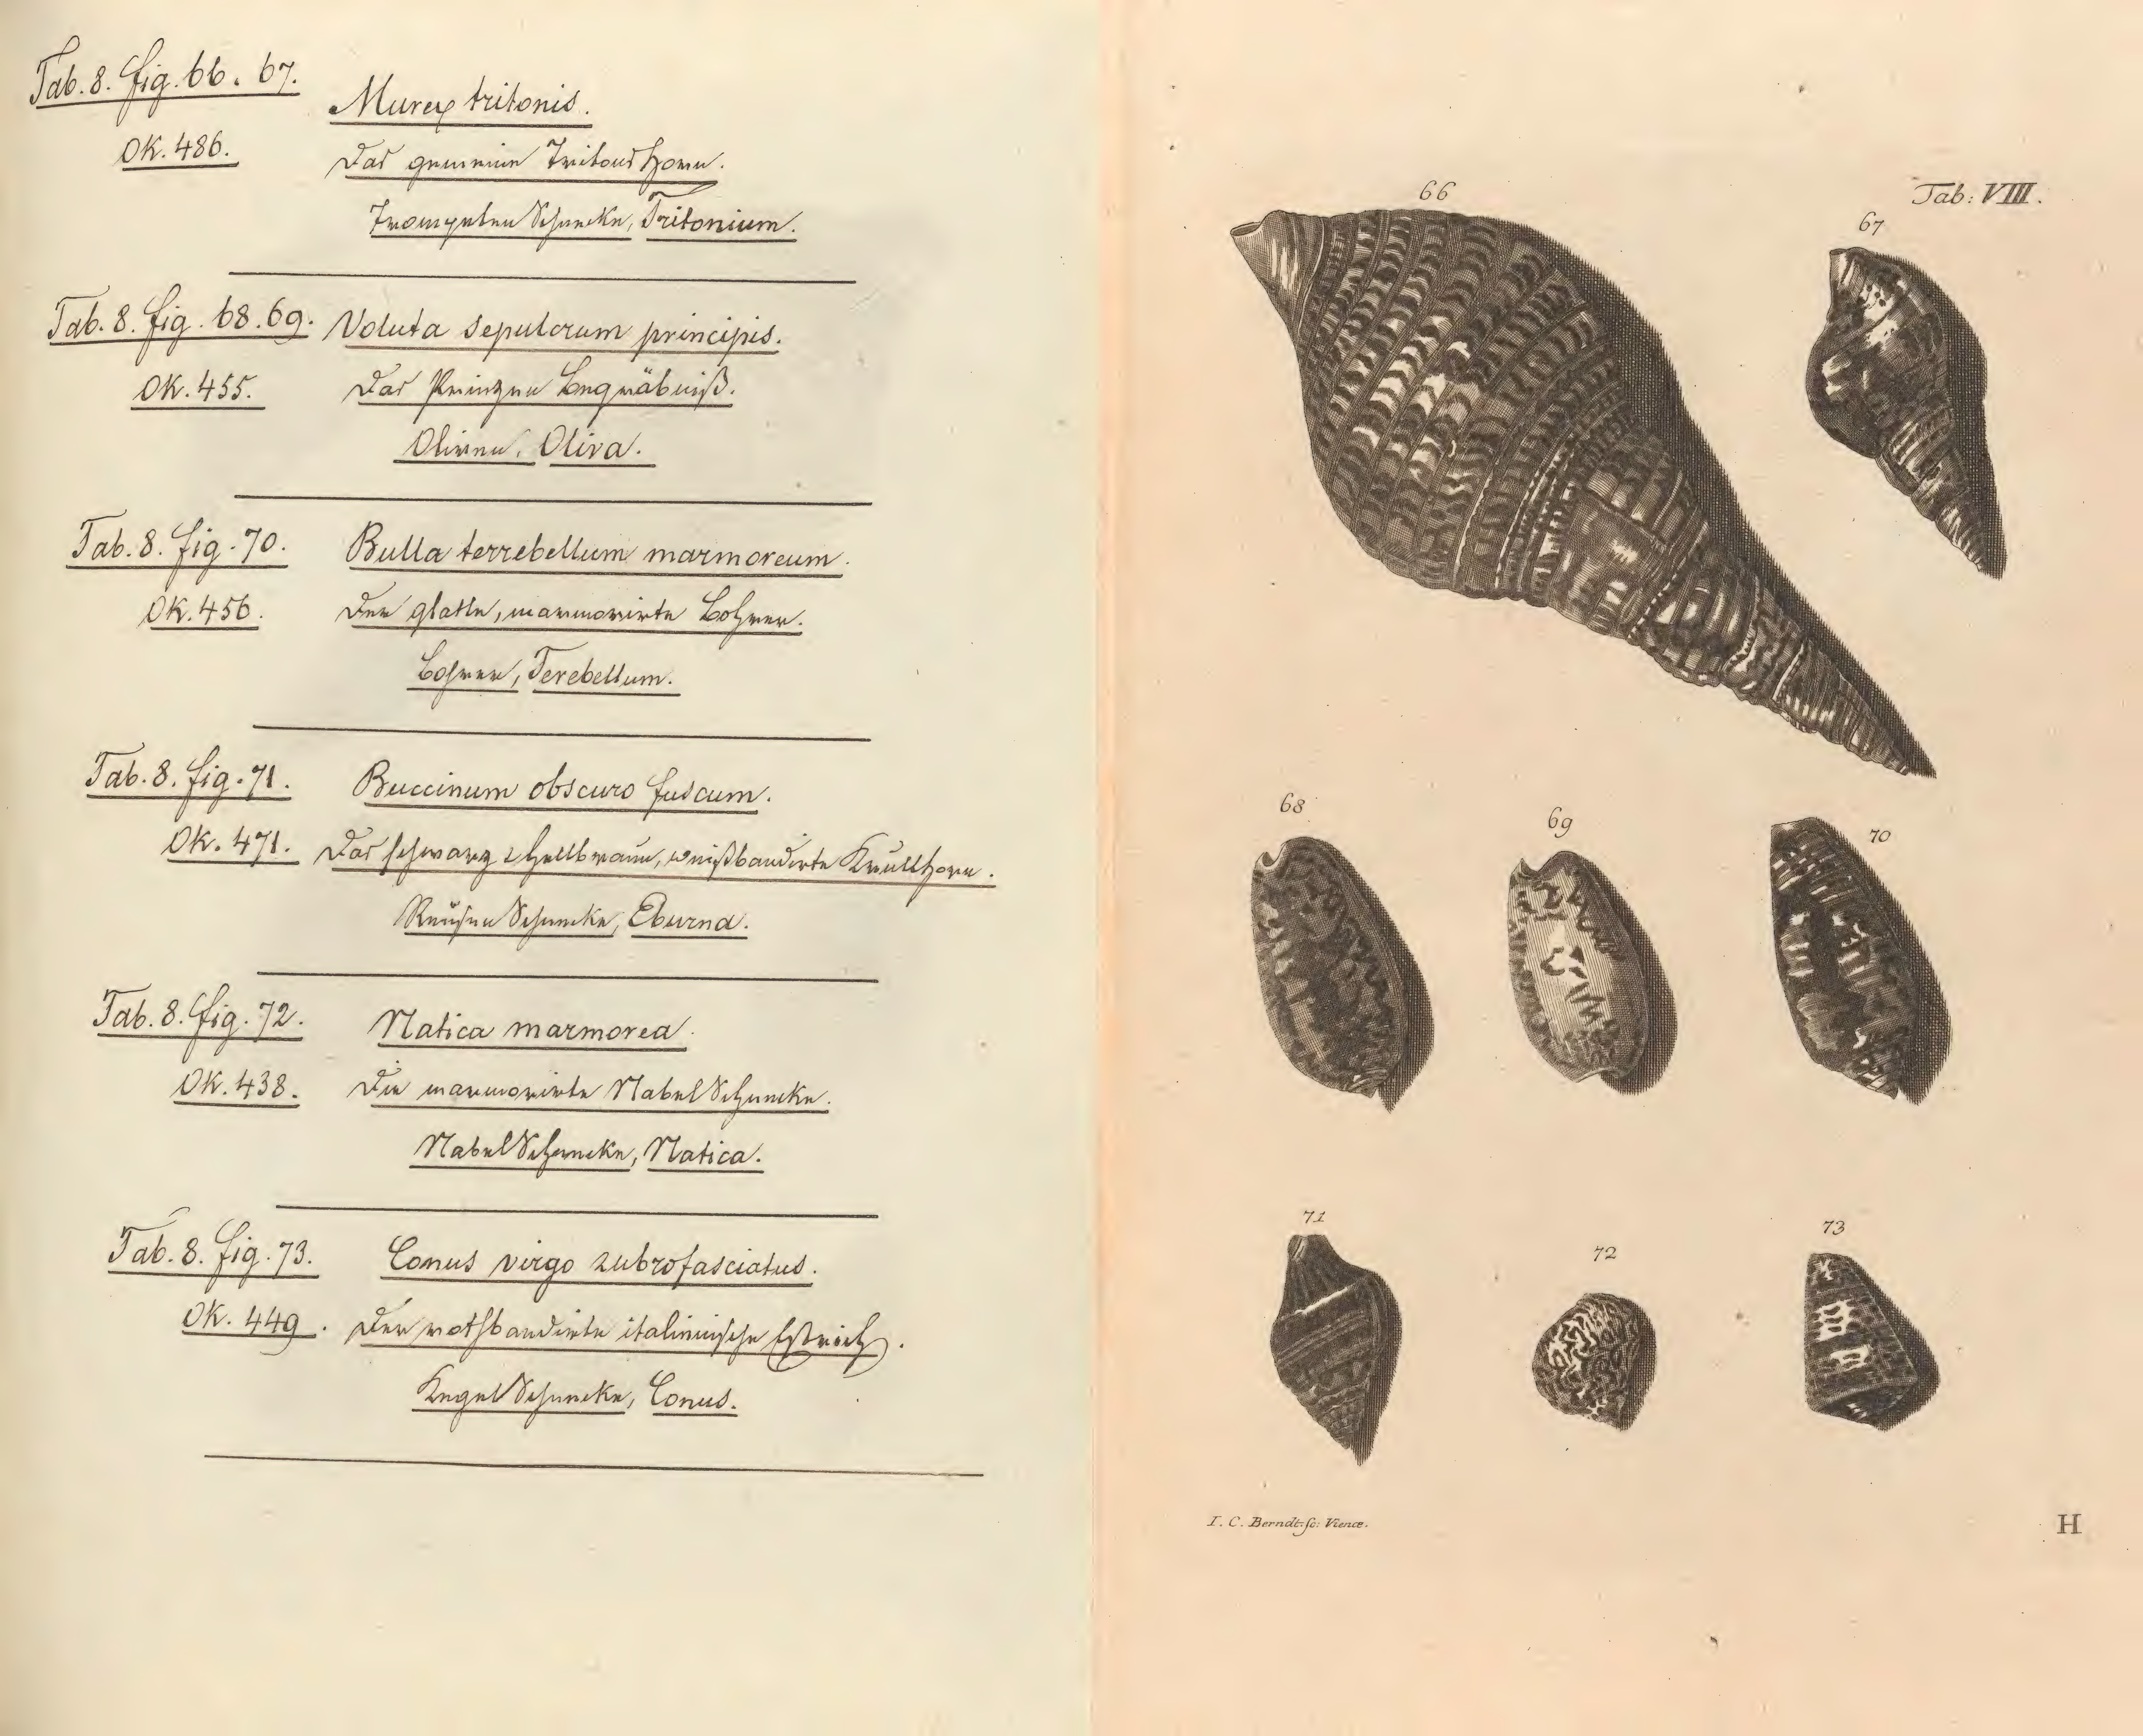 Tab. 8. fig. 66. 67.
Murex tritonis.
OK. 486.
Das gemeine Tritons Horn.
Trompeten Schnecke, Tritonium.
Tab. 8. fig. 68. 69. Voluta sepulcrum principis.
OK. 455. Das Prinzen Begräbniß.
Oliven, Oliva.
Tab. 8. fig. 70. Bulla terrebellum marmoreum.
OK. 456. Der glatte, marmorirte Bohrer.
Bohrer, Terebellum.
Tab. 8. fig. 71. Buccinum obscuro fuscum.
OK. 471. Das schwarz & hellbraun, weißbandirte Knüllhorn.
Schnecke, Eburna.
Tab. 8. fig. 72. Natica marmorea.
OK. 438. Die marmorirte Nabel Schnecke.
Nabel Schnecke, Natica.
Tab. 8. fig. 73. Conus virgo rubrofasciatus.
OK. 449. Der rothbandirte italienische Estrich.
Kegel Schnecke, Conus.
Tab: VIII.
66
67
68
69
70
71
72
73
I. C. Berndt. sc: Vienæ.
H